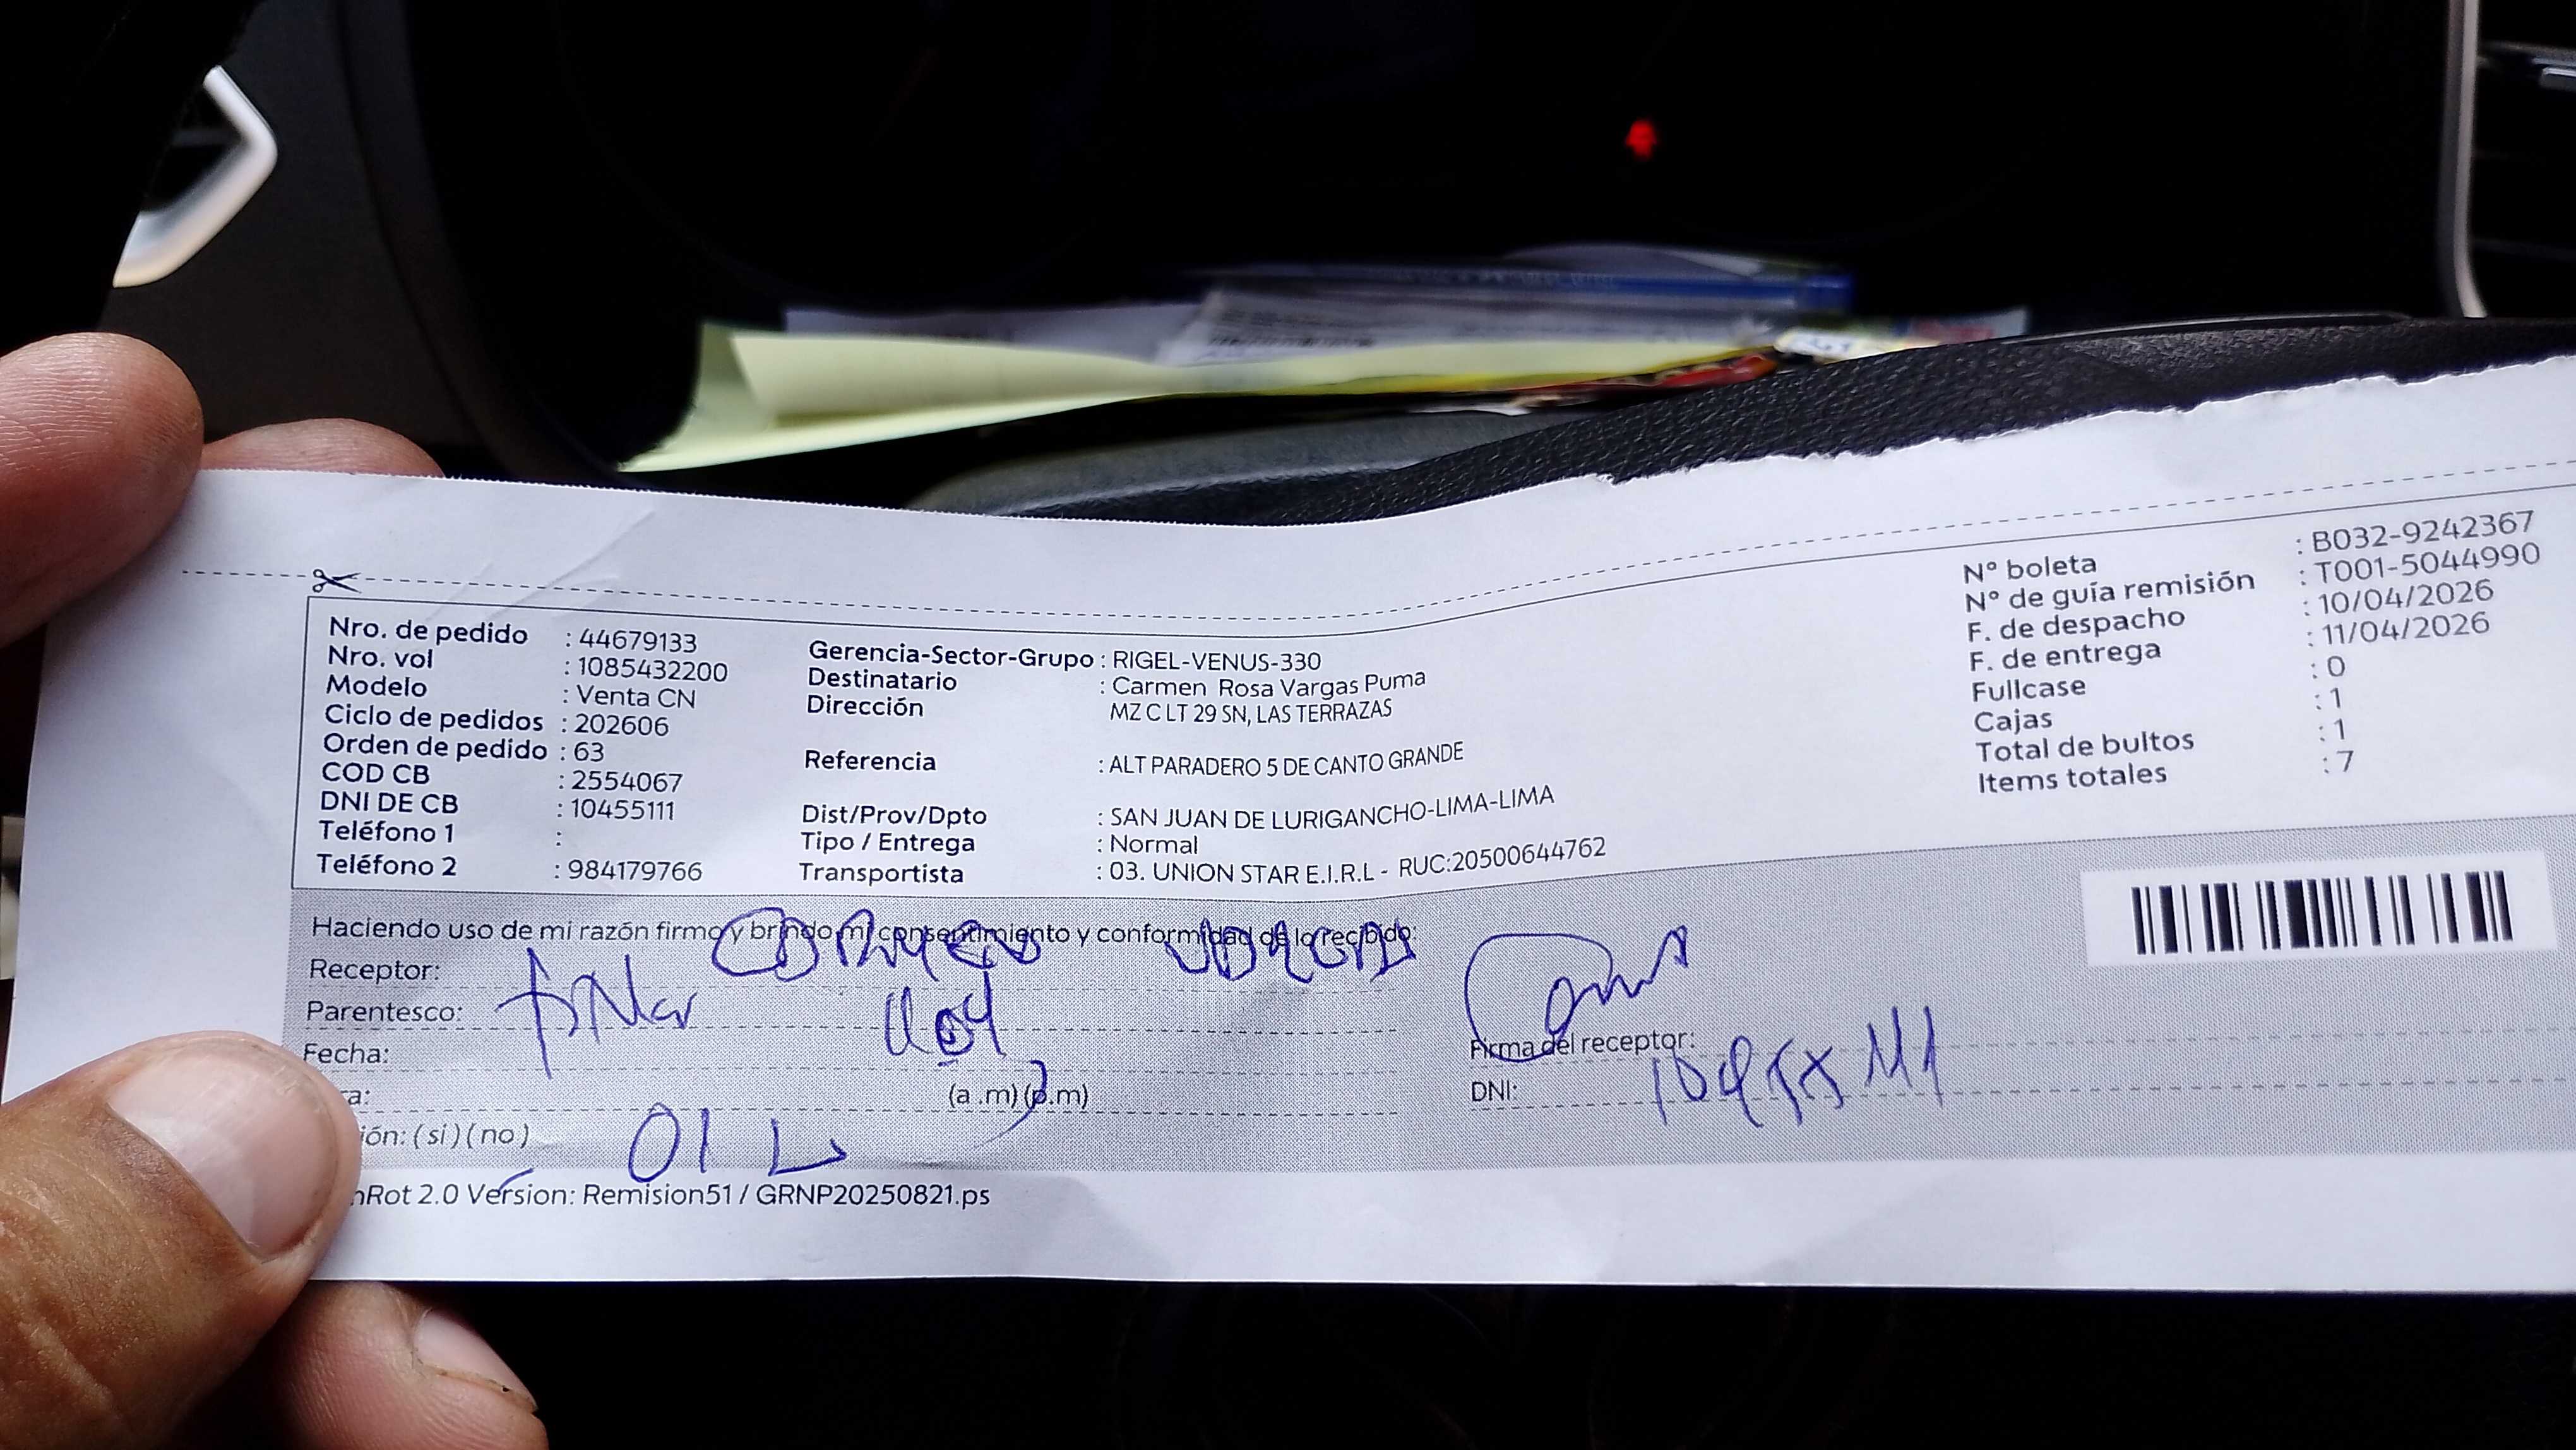 Nro. de pedido : 44679133
Nro. vol : 1085432200
Modelo : Venta CN
Ciclo de pedidos : 202606
Orden de pedido : 63
COD CB : 2554067
DNI DE CB : 10455111
Teléfono 1 :
Teléfono 2 : 984179766
Gerencia-Sector-Grupo : RIGEL-VENUS-330
Destinatario : Carmen Rosa Vargas Puma
Dirección MZ C LT 29 SN, LAS TERRAZAS
Referencia : ALT PARADERO 5 DE CANTO GRANDE
Dist/Prov/Dpto : SAN JUAN DE LURIGANCHO-LIMA-LIMA
Tipo / Entrega : Normal
Transportista : 03. UNION STAR E.I.R.L - RUC:20500644762
N° boleta : B032-9242367
N° de guía remisión : T001-5044990
F. de despacho : 10/04/2026
F. de entrega : 11/04/2026
Fullcase : 0
Cajas : 1
Total de bultos : 1
Items totales : 7
Haciendo uso de mi razón firmo y brindo mi consentimiento y conformidad de lo recibido:
Receptor: CARMEN VARGAS
Parentesco:
Fecha:
a: (a.m) (p.m)
ión: (si) (no)
Firma del receptor:
DNI: 10455111
nRot 2.0 Version: Remision51 / GRNP20250821.ps